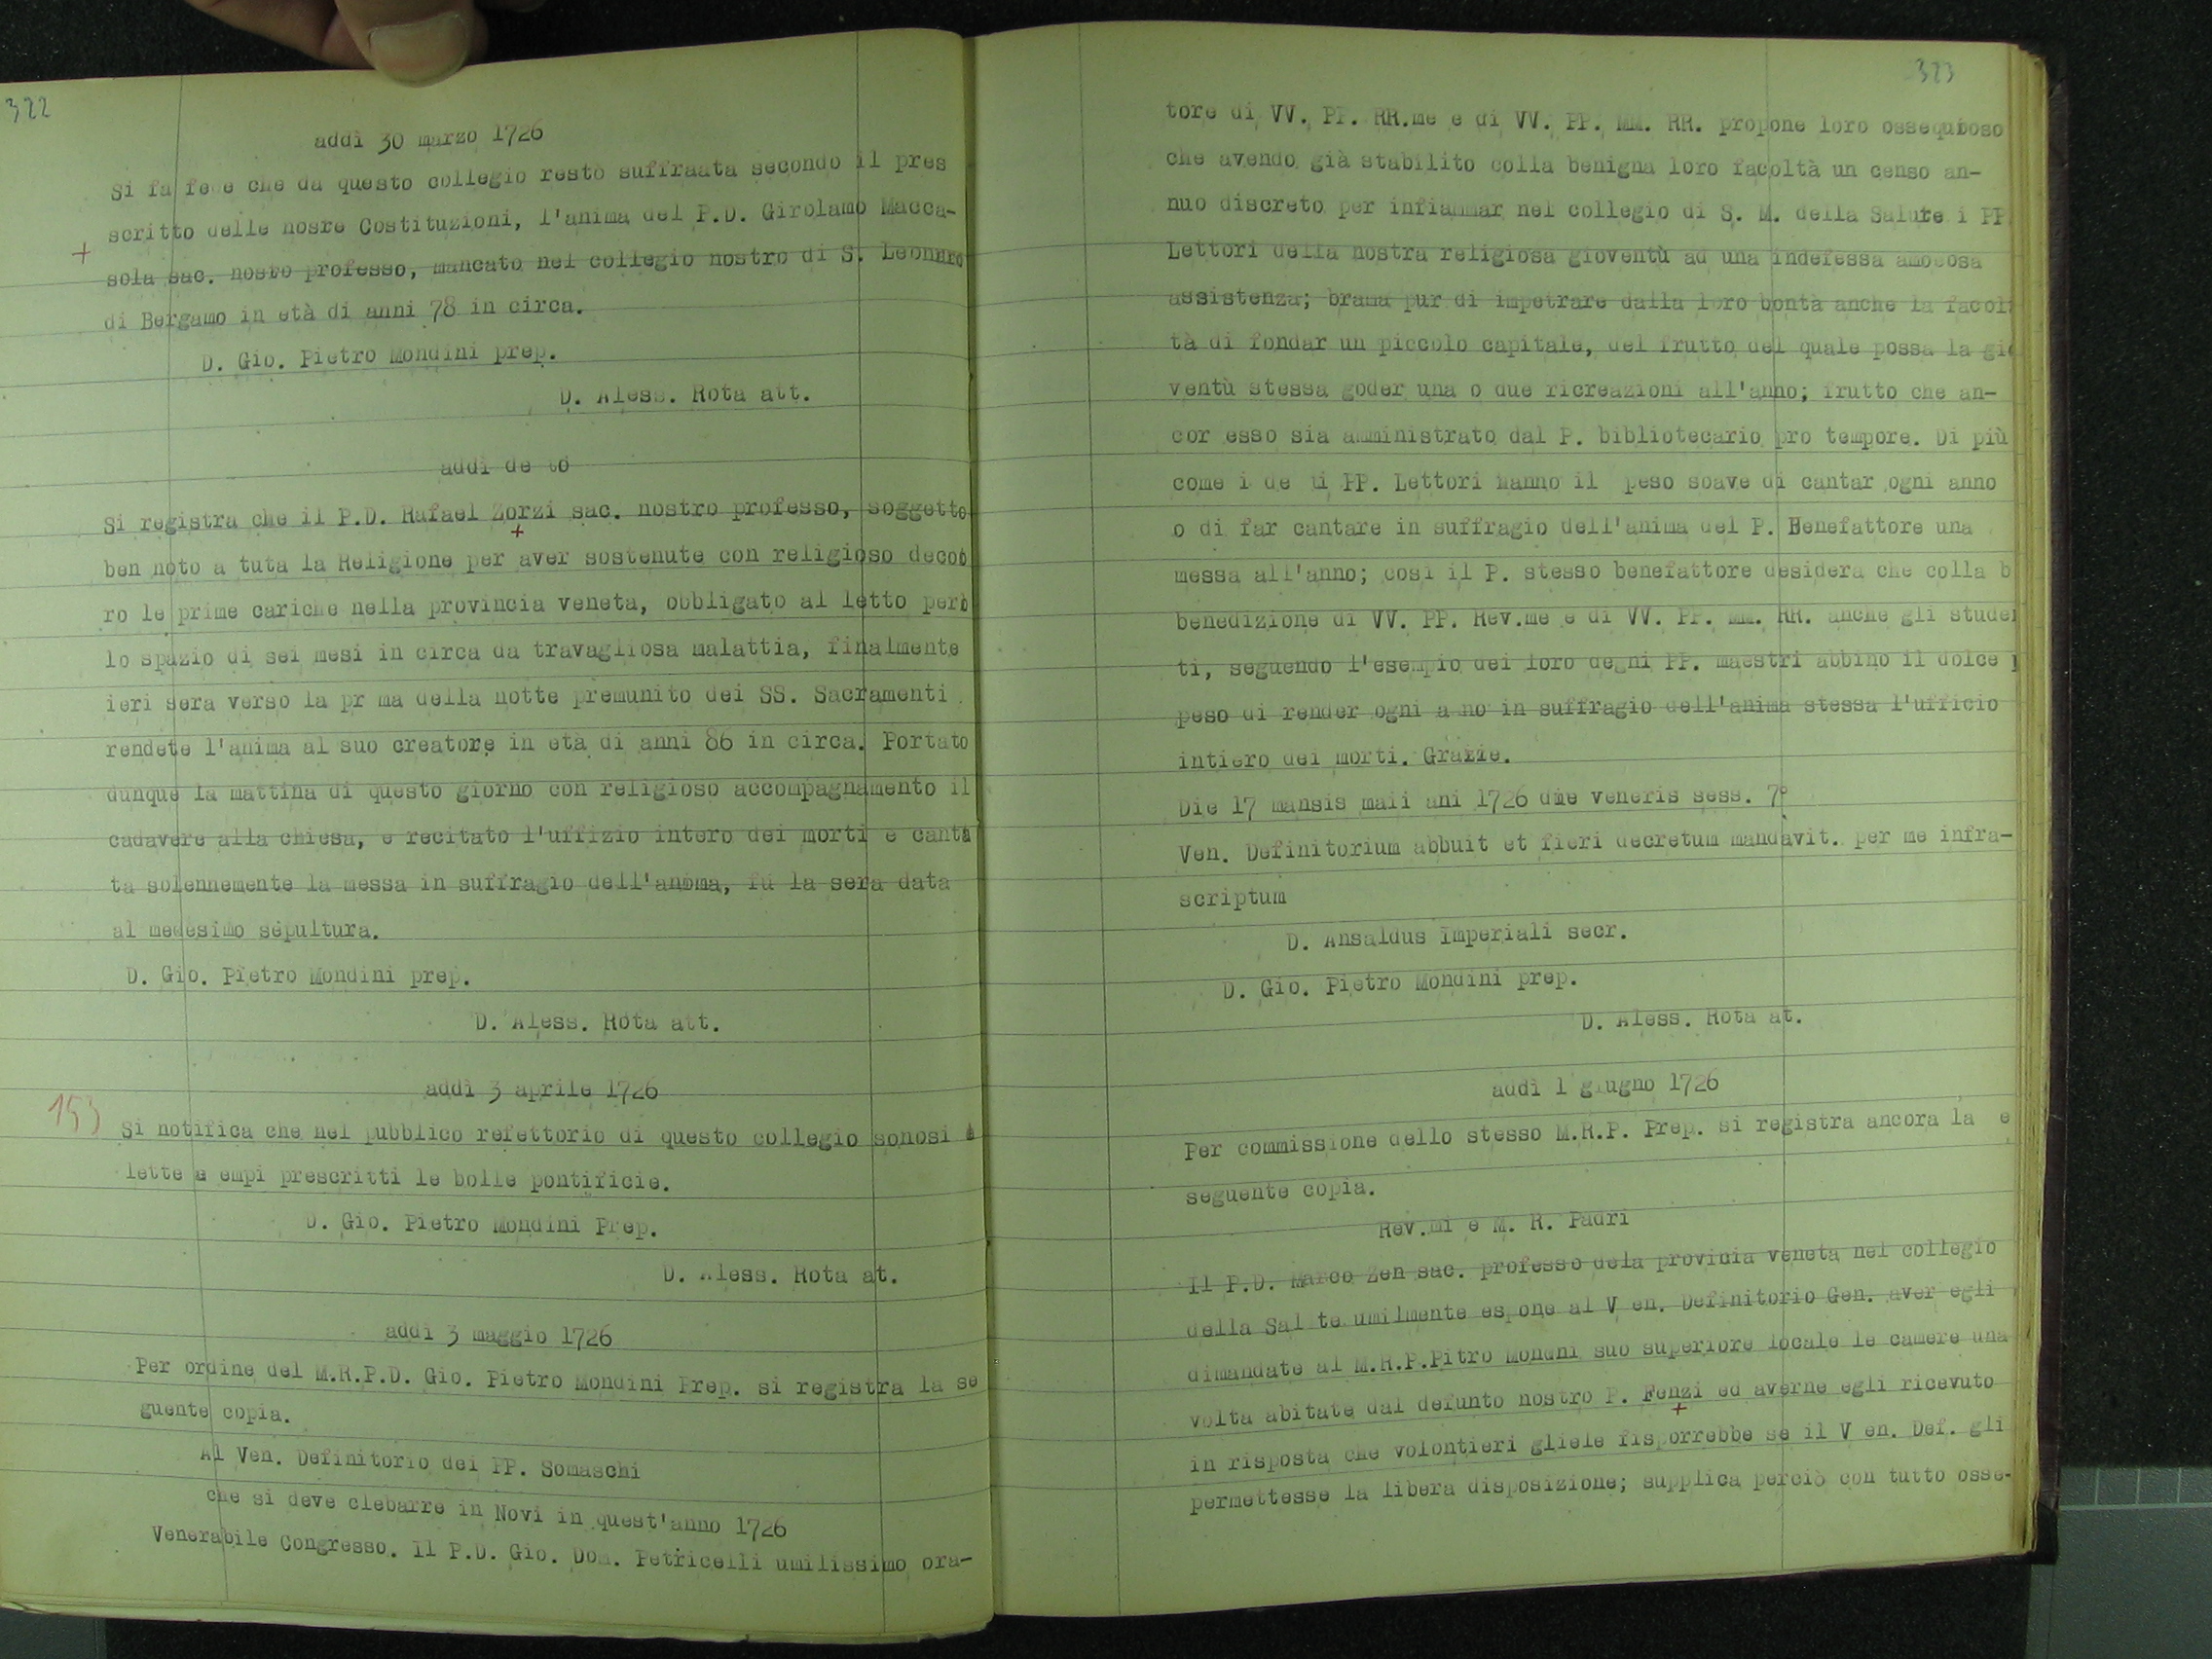 322
addì 30 marzo 1726
Si fa fede che da questo collegio restò suffraata secondo il pres
scritto delle nosre Costituzioni, l'anima del P.D. Girolamo Macca-
+
sola sac. nosto professo, mancato nel collegio nostro di S. Leonaro
di Bergamo in età di anni 78 in circa.
D. Gio. Pietro Mondini prep.
D. Aless. Rota att.
addì de to
Si registra che il P.D. Rafael Zorzi sac. nostro professo, soggetto
+
ben noto a tuta la Religione per aver sostenute con religioso deco
ro le prime cariche nella provincia veneta, obbligato al letto però
lo spazio di sei mesi in circa da travagliosa malattia, finalmente
ieri sera verso la pr ma della notte premunito dei SS. Sacramenti
rendete l'anima al suo creatore in età di anni 86 in circa. Portato
dunque la mattina di questo giorno con religioso accompagnamento il
cadavere alla chiesa, e recitato l'uffizio intero dei morti e canta
ta solennemente la messa in suffragio dell'anima, fù la sera data
al medesimo sepultura.
D. Gio. Pietro Mondini prep.
D. Aless. Rota att.
addì 3 aprile 1726
153
Si notifica che nel pubblico refettorio di questo collegio sonosi
lette a empi prescritti le bolle pontificie.
D. Gio. Pietro Mondini Prep.
D. Aless. Rota at.
addì 3 maggio 1726
Per ordine del M.R.P.D. Gio. Pietro Mondini Prep. si registra la se
guente copia.
Al Ven. Definitorio dei PP. Somaschi
che si deve clebarre in Novi in quest'anno 1726
Venerabile Congresso. Il P.D. Gio. Dom. Petricelli umilissimo ora-
323
tore di VV. PP. RR.me e di VV. PP. MM. RR. propone loro ossequioso
che avendo già stabilito colla benigna loro facoltà un censo an-
nuo discreto per infiammar nel collegio di S. M. della Salute i PP
Lettori della nostra religiosa gioventù ad una indefessa amorosa
assistenza; brama pur di impetrare dalla loro bontà anche la facol
tà di fondar un piccolo capitale, del frutto del quale possa la gio
ventù stessa goder una o due ricreazioni all'anno; frutto che an-
cor esso sia amministrato dal P. bibliotecario pro tempore. Di più
come i de ti PP. Lettori hanno il peso soave di cantar ogni anno
o di far cantare in suffragio dell'anima del P. Benefattore una
messa all'anno; così il P. stesso benefattore desidera che colla b
benedizione di VV. PP. Rev.me e di VV. PP. MM. RR. anche gli studen
ti, seguendo l'esempio dei loro degni PP. maestri abbino il dolce p
peso di render ogni a no in suffragio dell'anima stessa l'ufficio
intiero dei morti. Grazie.
Die 17 mansis maii ani 1726 die veneris sess. 7ª
Ven. Definitorium abbuit et fieri decretum mandavit. per me infra-
scriptum
D. Ansaldus Imperiali secr.
D. Gio. Pietro Mondini prep.
D. Aless. Rota at.
addì 1 giugno 1726
Per commissione dello stesso M.R.P. Prep. si registra ancora la e
seguente copia.
Rev.mi e M. R. Padri
Il P.D. Marco Zen sac. professo dela provicia veneta nel collegio
della Sal te umilmente espone al V en. Definitorio Gen. aver egli
dimandate al M.R.P.Pitro Mondni suo superiore locale le camere una
volta abitate dal defunto nostro P. Fenzi ed averne egli ricevuto
+
in risposta che volontieri gliele fisporrebbe se il V en. Def. gli
permettesse la libera disposizione; supplica perciò con tutto osse-